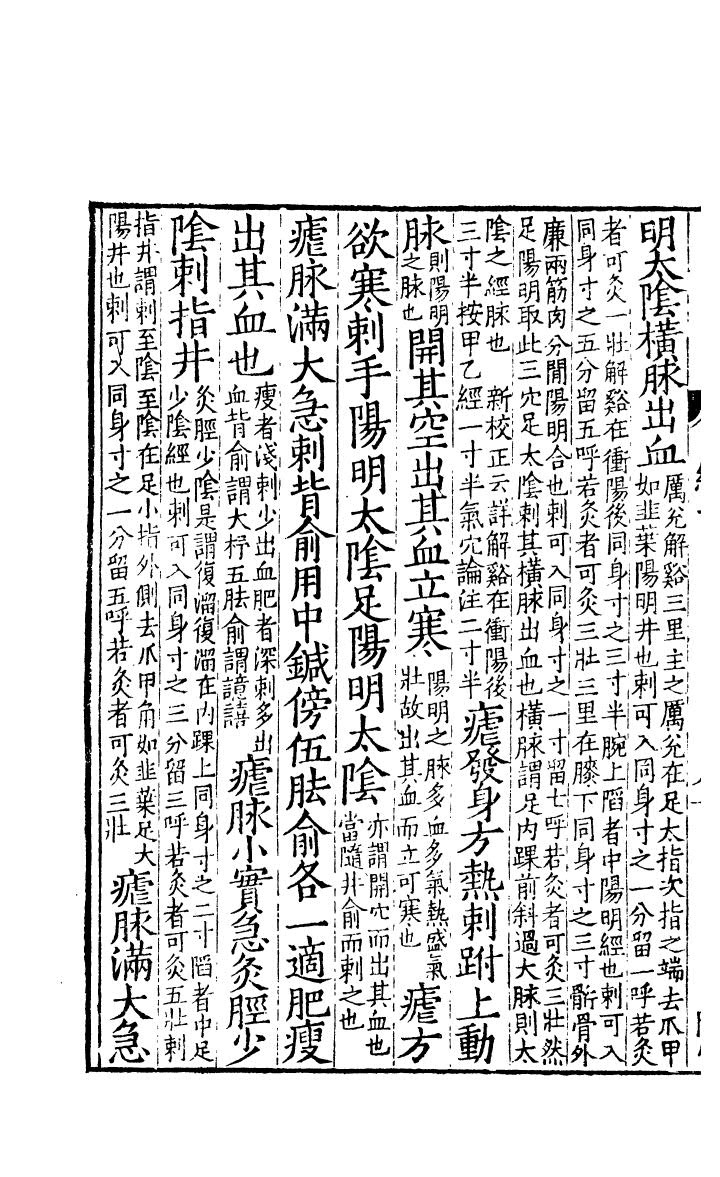 明太陰橫脉出血厲兊解谿三里主之厲兊在足太指次指之端去爪甲
如韭葉陽明井也刺可入同身寸之一分留一呼若灸
者可灸一壯解谿在衝陽後同身寸之三寸半腕上䧟者中陽明經也刺可入
同身寸之五分留五呼若灸者可灸三壯三里在膝下同身寸之三寸䯒骨外
廉兩筋肉分閒陽明合也刺可入同身寸之一寸留七呼若灸者可灸三壯然
足陽明取此三穴足太陰刺其橫脉出血也橫脉謂足內踝前斜過大脉則太
陰之經脉也 新校正云詳解谿在衝陽後
三寸半按甲乙經一寸半氣穴論注二寸半瘧發身方熱刺跗上動
脉則陽明
之脉也開其空出其血立寒陽明之脉多血多氣熱盛氣
壯故出其血而立可寒也瘧方
欲寒刺手陽明太陰足陽明太陰亦謂開穴而出其血也
當隨井俞而刺之也
瘧脉滿大急刺背俞用中鍼傍伍胠俞各一適肥瘦
出其血也瘦者淺刺少出血肥者深刺多出
血背俞謂大杼五胠俞謂譩譆瘧脉小實急灸脛少
陰刺指井灸脛少陰是謂復溜復溜在內踝上同身寸之二寸䧟者中足
少陰經也刺可入同身寸之三分留三呼若灸者可灸五壯刺
指井謂刺至陰至陰在足小指外側去爪甲角如韭葉足大
陽井也刺可入同身寸之一分留五呼若灸者可灸三壯瘧脉滿大急